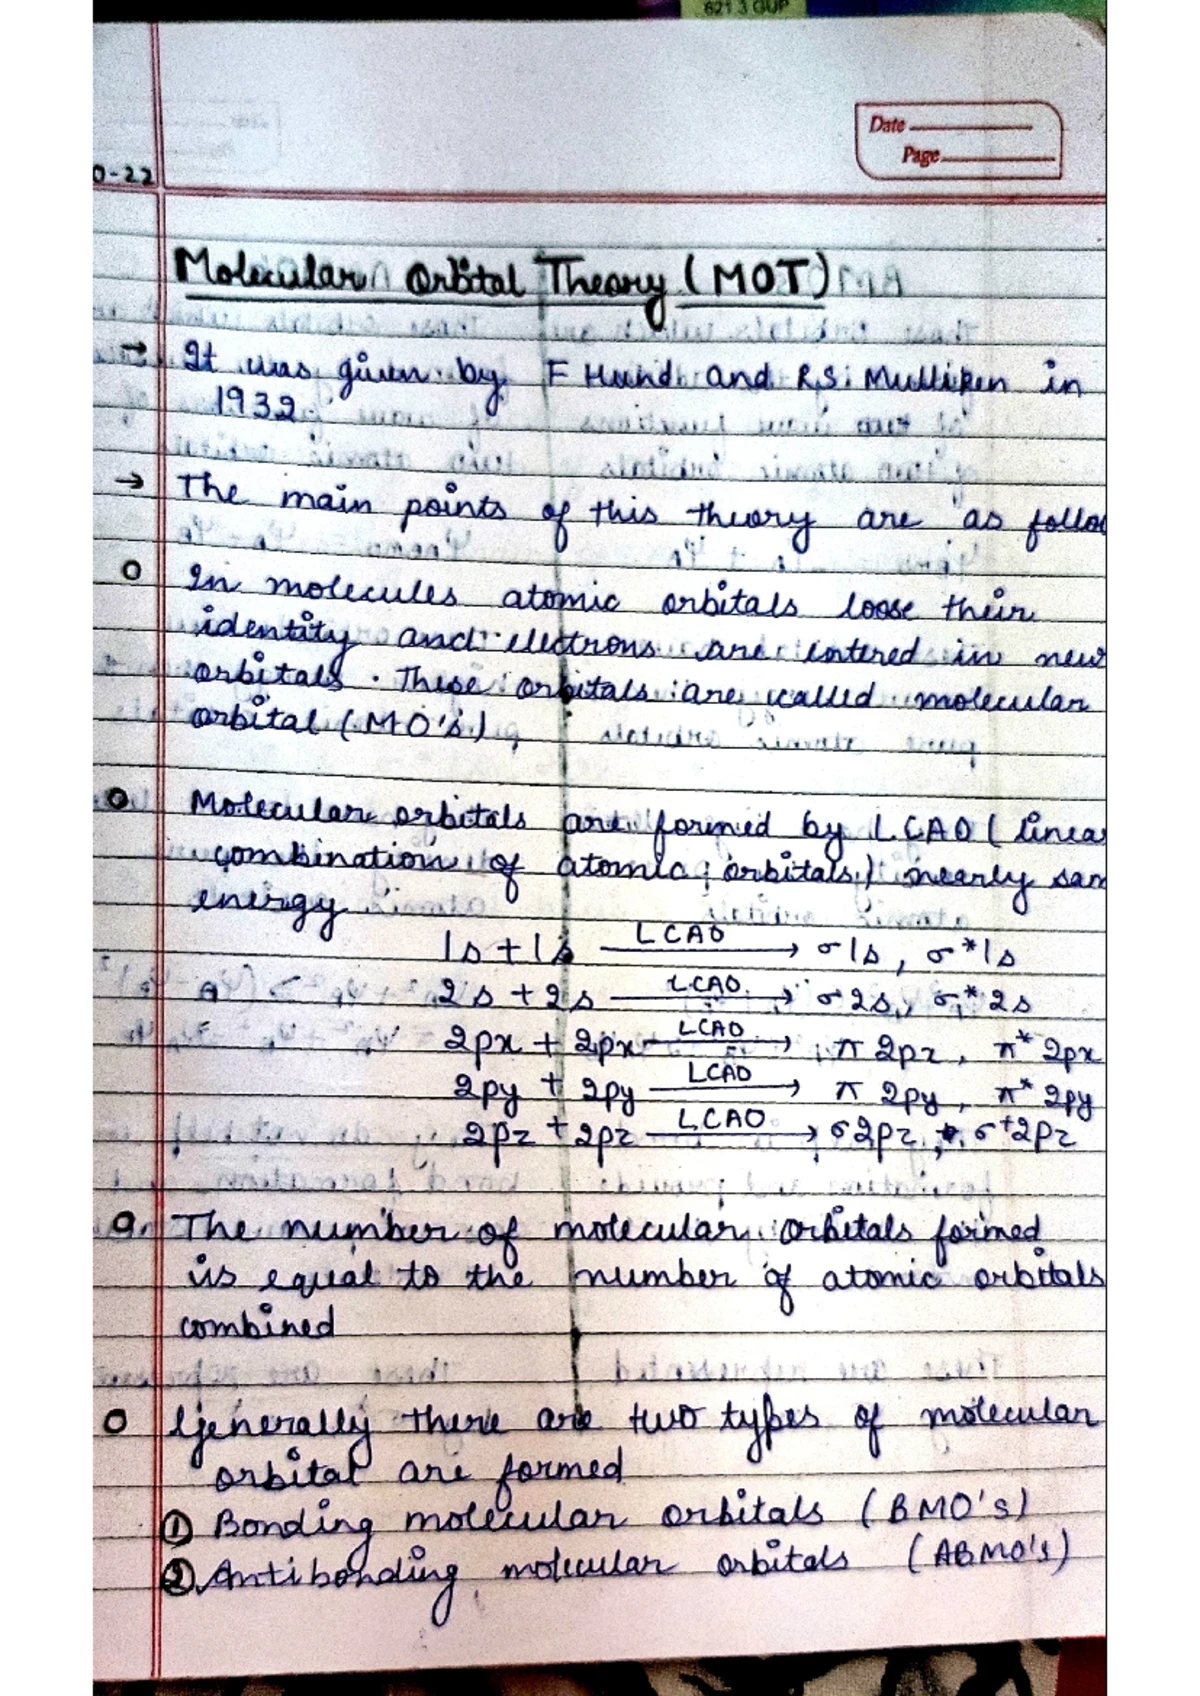 621 3 GUP
Date
Page
0-22
Molecular Orbital Theory (MOT)
→ It was given by F Hund and R.S. Mulliken in
1932
→ The main points of this theory are as follo
o In molecules atomic orbitals loose their
identity and electrons are entered in new
orbitals. These orbitals are called molecular
orbital (MO's)
o Molecular orbitals are formed by LCAO (linea
combination of atomic orbitals) nearly sam
energy
1s + 1s LCAO → σ1s, σ*1s
2s + 2s LCAO → σ2s, σ*2s
2px + 2px LCAO → π 2px, π* 2px
2py + 2py LCAO → π 2py, π* 2py
2pz + 2pz LCAO → σ2pz, σ+2pz
o The number of molecular orbitals formed
is equal to the number of atomic orbitals
combined
o Generally there are two types of molecular
orbital are formed
① Bonding molecular orbitals (BMO's)
② Antibonding molecular orbitals (ABMO's)